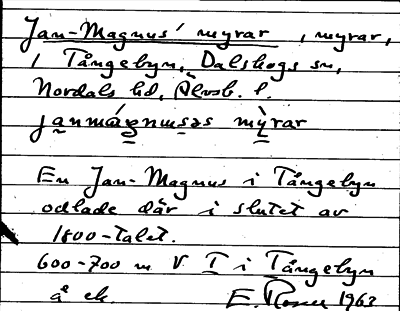 Jan-Magnus' myrar, myrar,
i Tångebyn, Dalskogs sn,
Nordals hd, Älvsb. l.
janmágnusəs mỳrar
En Jan-Magnus i Tångebyn
odlade där i slutet av
1800-talet.
600-700 m V I i Tångebyn
å ek.
E. 1963